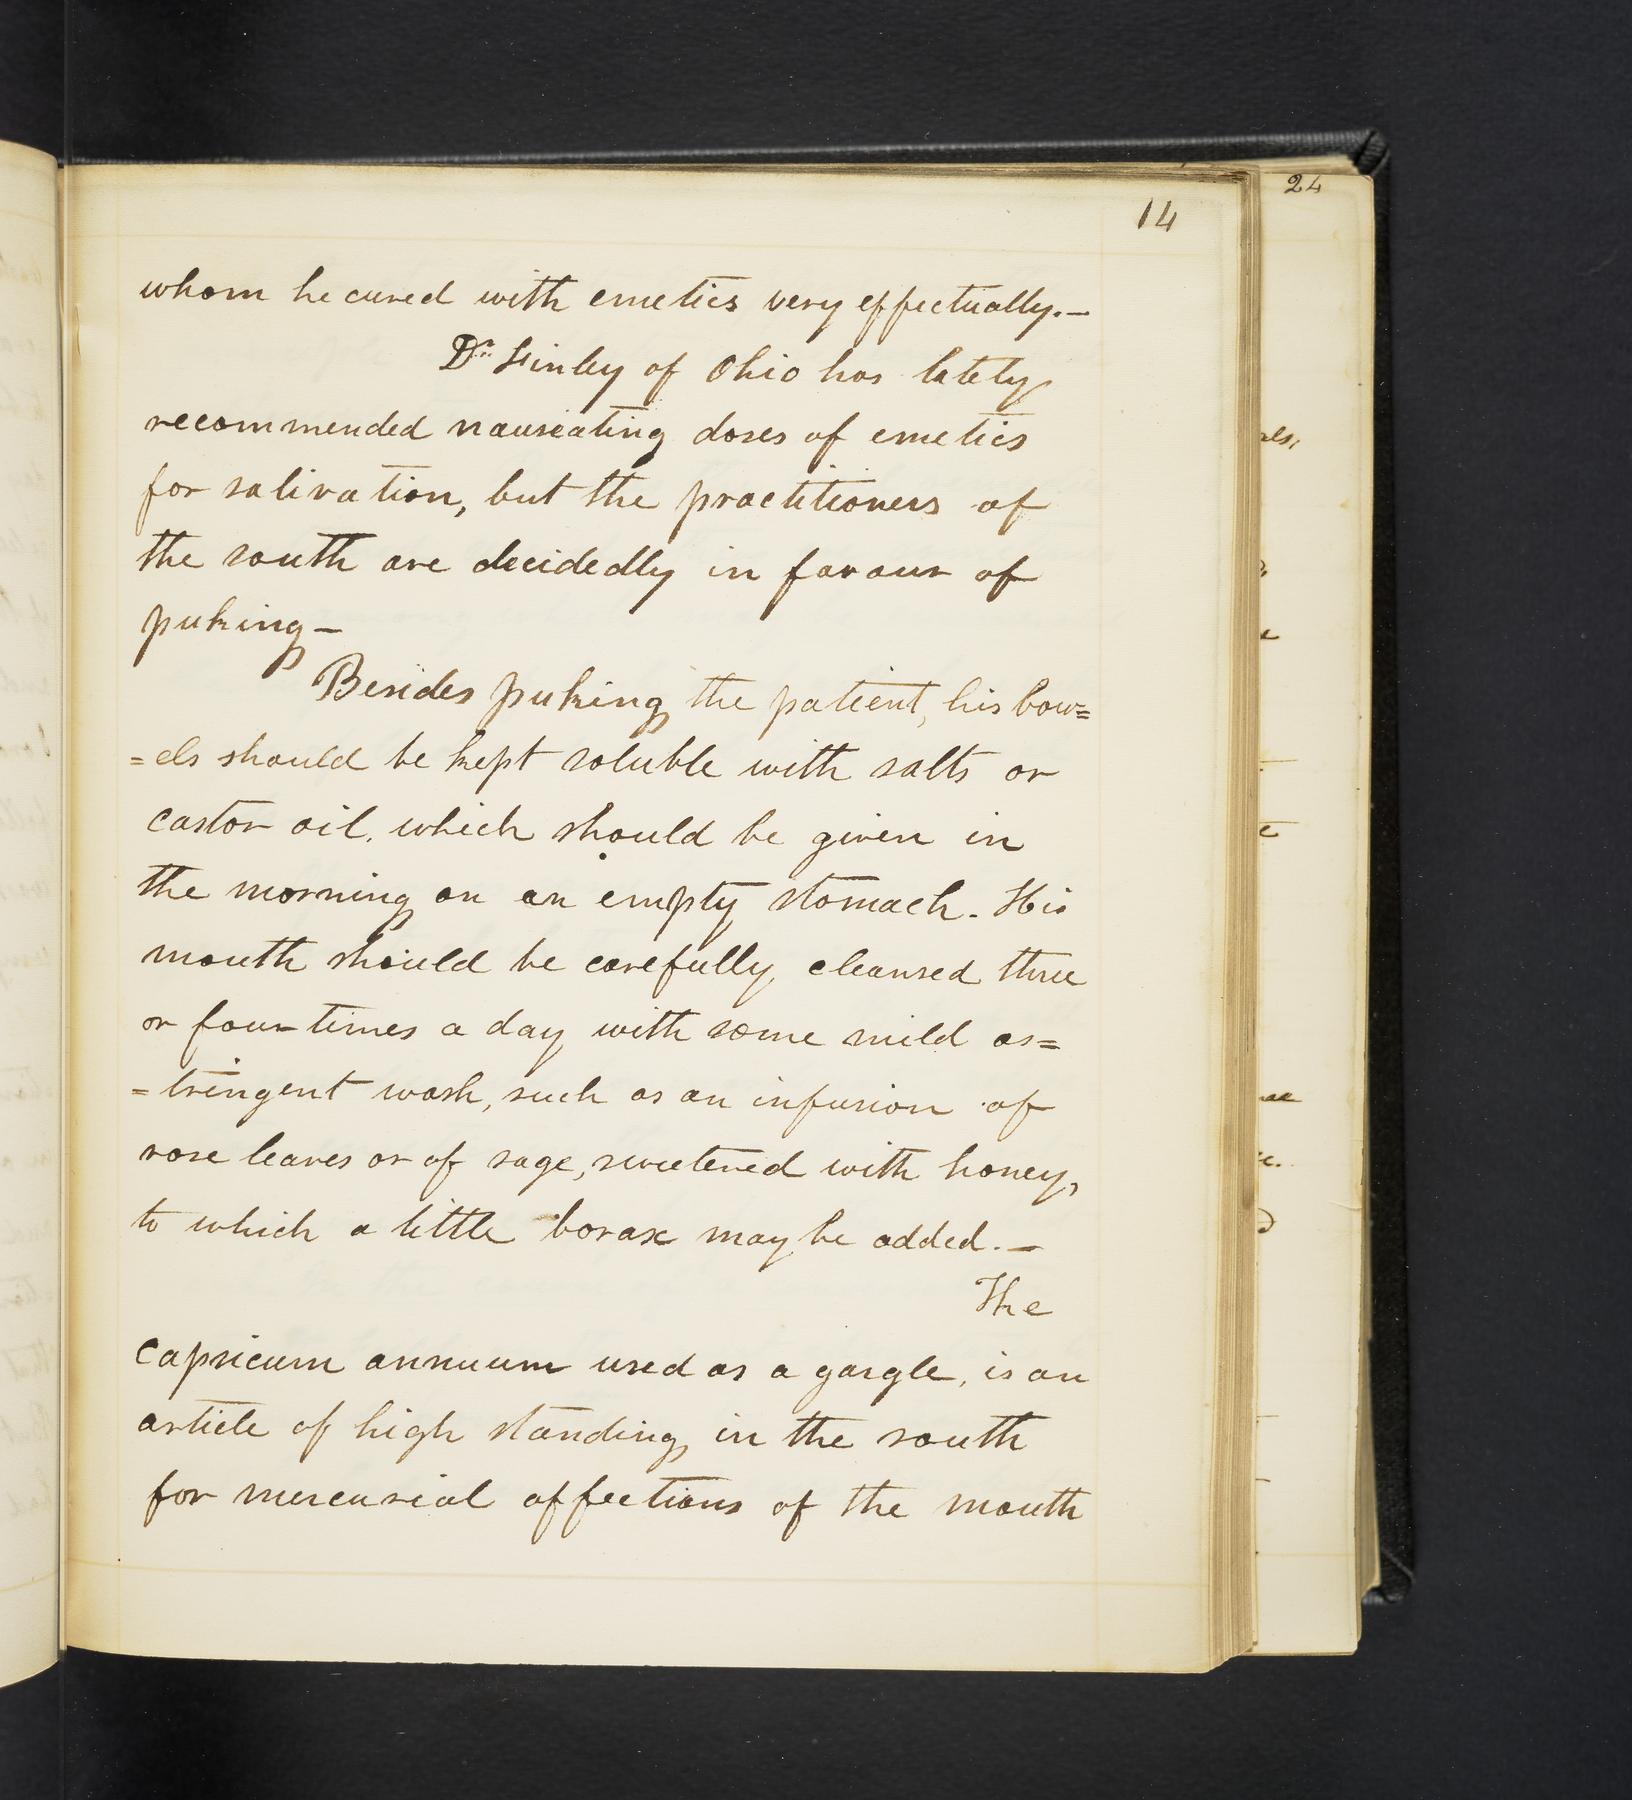 14
whom he cured with emetics very effectually.—
Dr. Finley of Ohio has lately
recommended nauseating doses of emetics
for salivation, but the practitioners of
the south are decidedly in favour of
puking—
Besides puking the patient, his bow=
=els should be kept soluble with salts or
castor oil, which should be given in
the morning on an empty stomach. His
mouth should be carefully cleansed three
or four times a day with some mild as=
=tringent wash, such as an infusion of
rose leaves or of sage, sweetened with honey,
to which a little borax may be added.—
The
capsicum annuum used as a gargle, is an
article of high standing in the south
for mercurial affections of the mouth
24